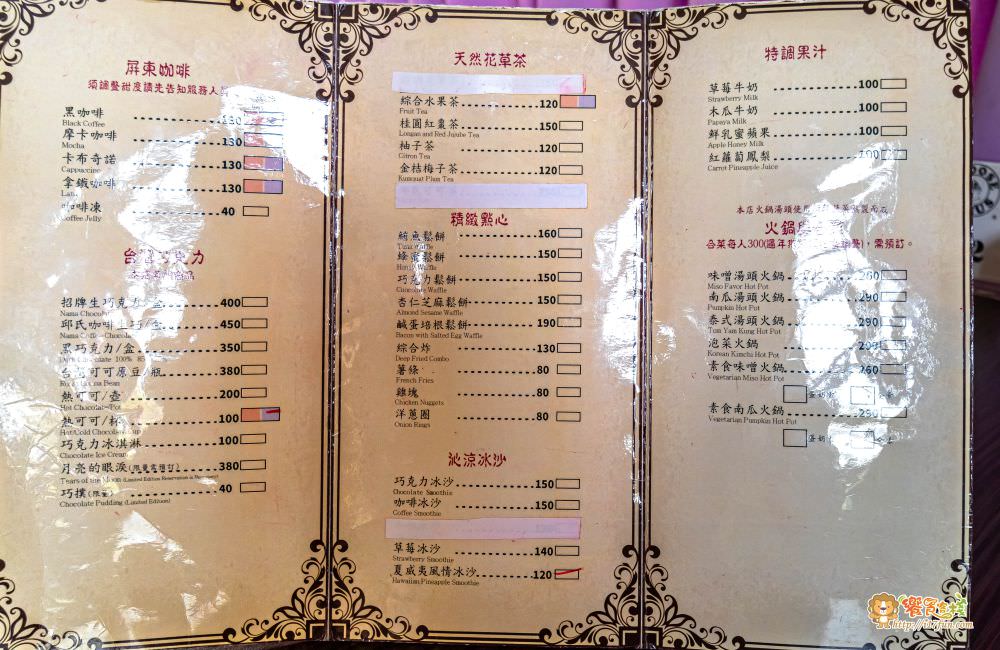 屏東咖啡
須調整甜度請先告知服務人員
黑咖啡 130
Black Coffee
摩卡咖啡 130
Mocha
卡布奇諾 130
Cappuccino
拿鐵咖啡 130
Latte
咖啡凍 40
Coffee Jelly
招牌生巧克力/盒 400
Nama Chocolate
邱氏咖啡生巧/盒 450
Nama Coffee Chocolate
黑巧克力/盒 350
Dark Chocolate 100% 85
台灣可可原豆/瓶 380
熱可可/壺 200
Hot Chocolate-Pot
熱可可/杯 100
Hot/Cold Chocolate-Cup
巧克力冰淇淋 100
Chocolate Ice Cream
月亮的眼淚(限量需預訂) 380
Tears of the Moon (Limited Edition Reservation is Necessary)
巧撲(限量) 40
Chocolate Pudding (Limited Edition)
天然花草茶
綜合水果茶 120
Fruit Tea
桂圓紅棗茶 150
Longan and Red Jujube Tea
柚子茶 120
Citron Tea
金桔梅子茶 120
Kumquat Plum Tea
精緻點心
鮪魚鬆餅 160
Tuna Waffle
蜂蜜鬆餅 150
Honey Waffle
巧克力鬆餅 150
Chocolate Waffle
杏仁芝麻鬆餅 150
Almond Sesame Waffle
鹹蛋培根鬆餅 190
Bacon with Salted Egg Waffle
綜合炸 130
Deep Fried Combo
薯條 80
French Fries
雞塊 80
Chicken Nuggets
洋蔥圈 80
Onion Rings
沁涼冰沙
巧克力冰沙 150
Chocolate Smoothie
咖啡冰沙 150
Coffee Smoothie
草莓冰沙 140
Strawberry Smoothie
夏威夷風情冰沙 120
Hawaiian Pineapple Smoothie
特調果汁
草莓牛奶 100
Strawberry Milk
木瓜牛奶 100
Papaya Milk
鮮乳蜜蘋果 100
Apple Honey Milk
紅蘿蔔鳳梨 100
Carrot Pineapple Juice
本店火鍋湯頭使用
火鍋
各菜每人300 需預訂。
味噌湯頭火鍋 260
Miso Favor Hot Pot
南瓜湯頭火鍋 290
Pumpkin Hot Pot
泰式湯頭火鍋 290
Tom Yam Kung Hot Pot
泡菜火鍋 290
Korean Kimchi Hot Pot
素食味噌火鍋 260
Vegetarian Miso Hot Pot
蛋奶素
素食南瓜火鍋 260
Vegetarian Pumpkin Hot Pot
蛋奶
http://i17fun.com